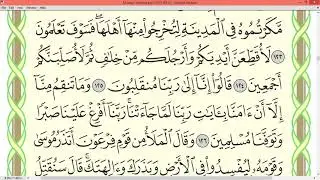 مَّكَرْتُمُوهُ فِى ٱلْمَدِينَةِ لِتُخْرِجُوا۟ مِنْهَآ أَهْلَهَا ۖ فَسَوْفَ تَعْلَمُونَ
١٢٣ لَأُقَطِّعَنَّ أَيْدِيَكُمْ وَأَرْجُلَكُم مِّنْ خِلَـٰفٍ ثُمَّ لَأُصَلِّبَنَّكُمْ
أَجْمَعِينَ ١٢٤ قَالُوٓا۟ إِنَّآ إِلَىٰ رَبِّنَا مُنقَلِبُونَ ١٢٥ وَمَا تَنقِمُ مِنَّآ
إِلَّآ أَنْ ءَامَنَّا بِـَٔايَـٰتِ رَبِّنَا لَمَّا جَآءَتْنَا ۚ رَبَّنَآ أَفْرِغْ عَلَيْنَا صَبْرًا
وَتَوَفَّنَا مُسْلِمِينَ ١٢٦ وَقَالَ ٱلْمَلَأُ مِن قَوْمِ فِرْعَوْنَ أَتَذَرُ مُوسَىٰ
وَقَوْمَهُۥ لِيُفْسِدُوا۟ فِى ٱلْأَرْضِ وَيَذَرَكَ وَءَالِهَتَكَ ۚ قَالَ سَنُقَتِّلُ